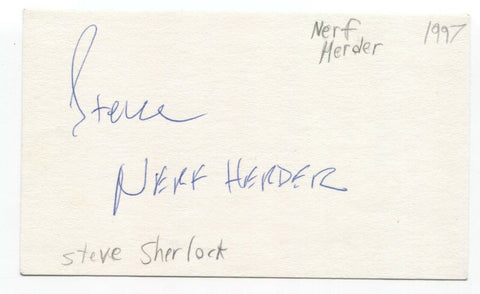 Nerf 1997
Herder
Steve
NERF HERDER
Steve Sherlock